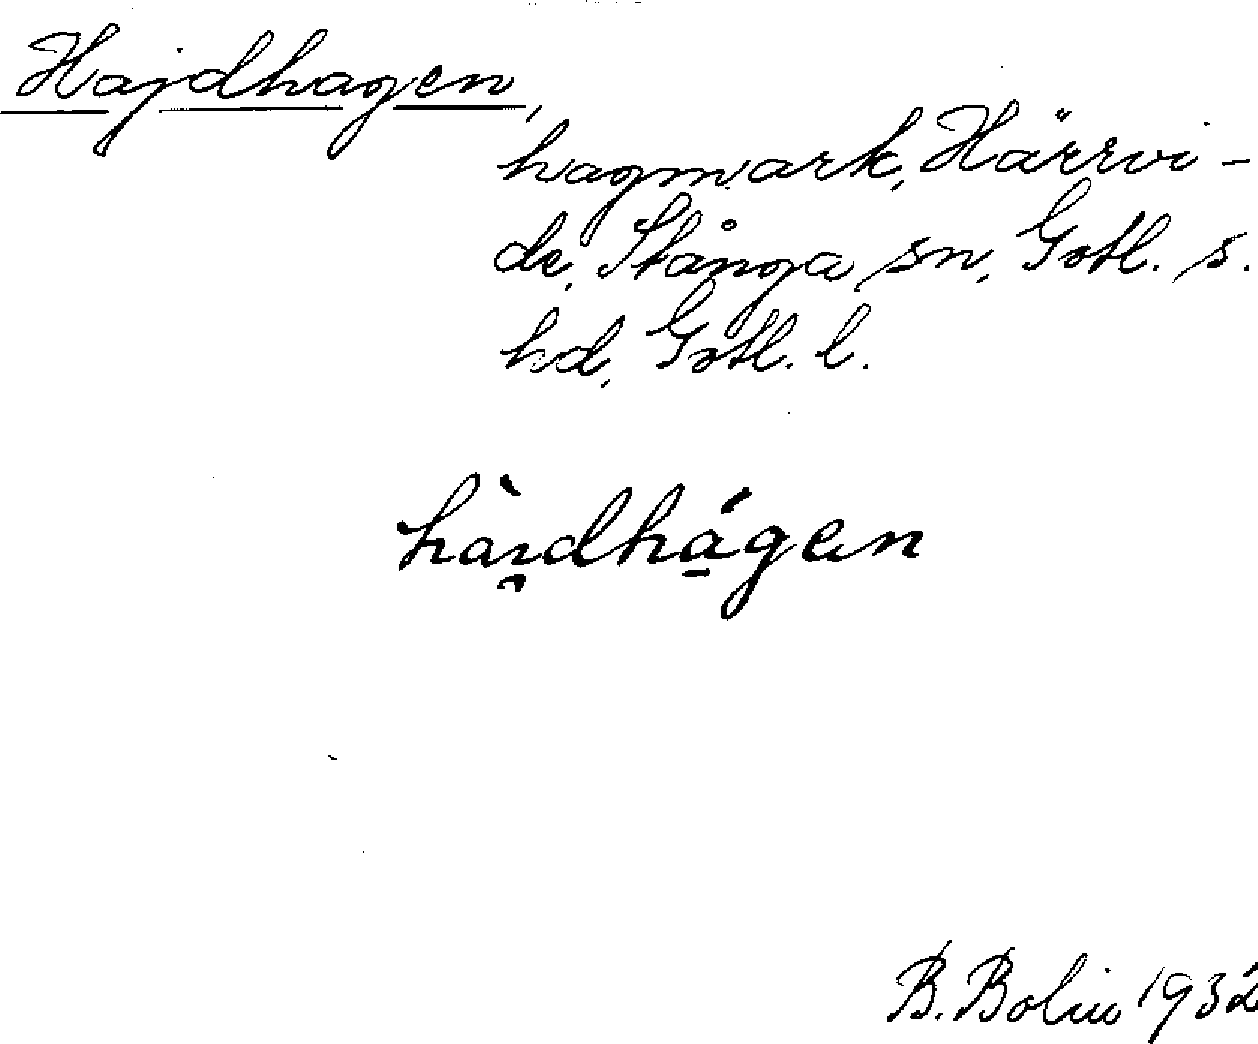 Hajdhagen,
hagmark, Härrvi-
de, Stånga sn, Gotl. s.
hd, Gotl. l.
hàı̯dhá̱gen
B. Bolin 1932